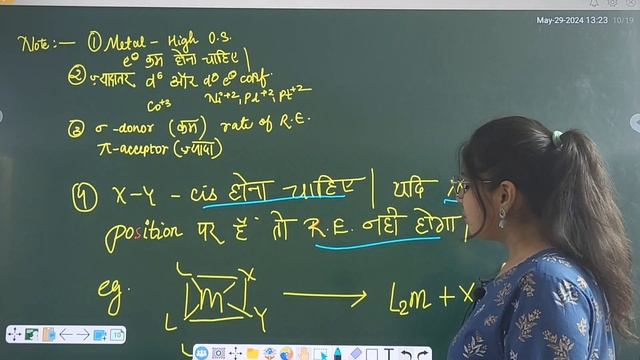 May-29-2024 13:23 10/19
Note:— ① Metal - High O.S.
e⊖ कम होना चाहिए |
② ज़्यादातर d⁶ और d⁸ e⊖ conf.
Co⁺³ Ni⁺², Pd⁺², Pt⁺²
③ σ-donor (कम) rate of R.E.
π-acceptor (ज़्यादा)
④ X-Y - cis होना चाहिए | यदि
position पर हैं तो R.E. नहीं होगा |
eg. L X
M ⟶ L₂M + X
L Y
L